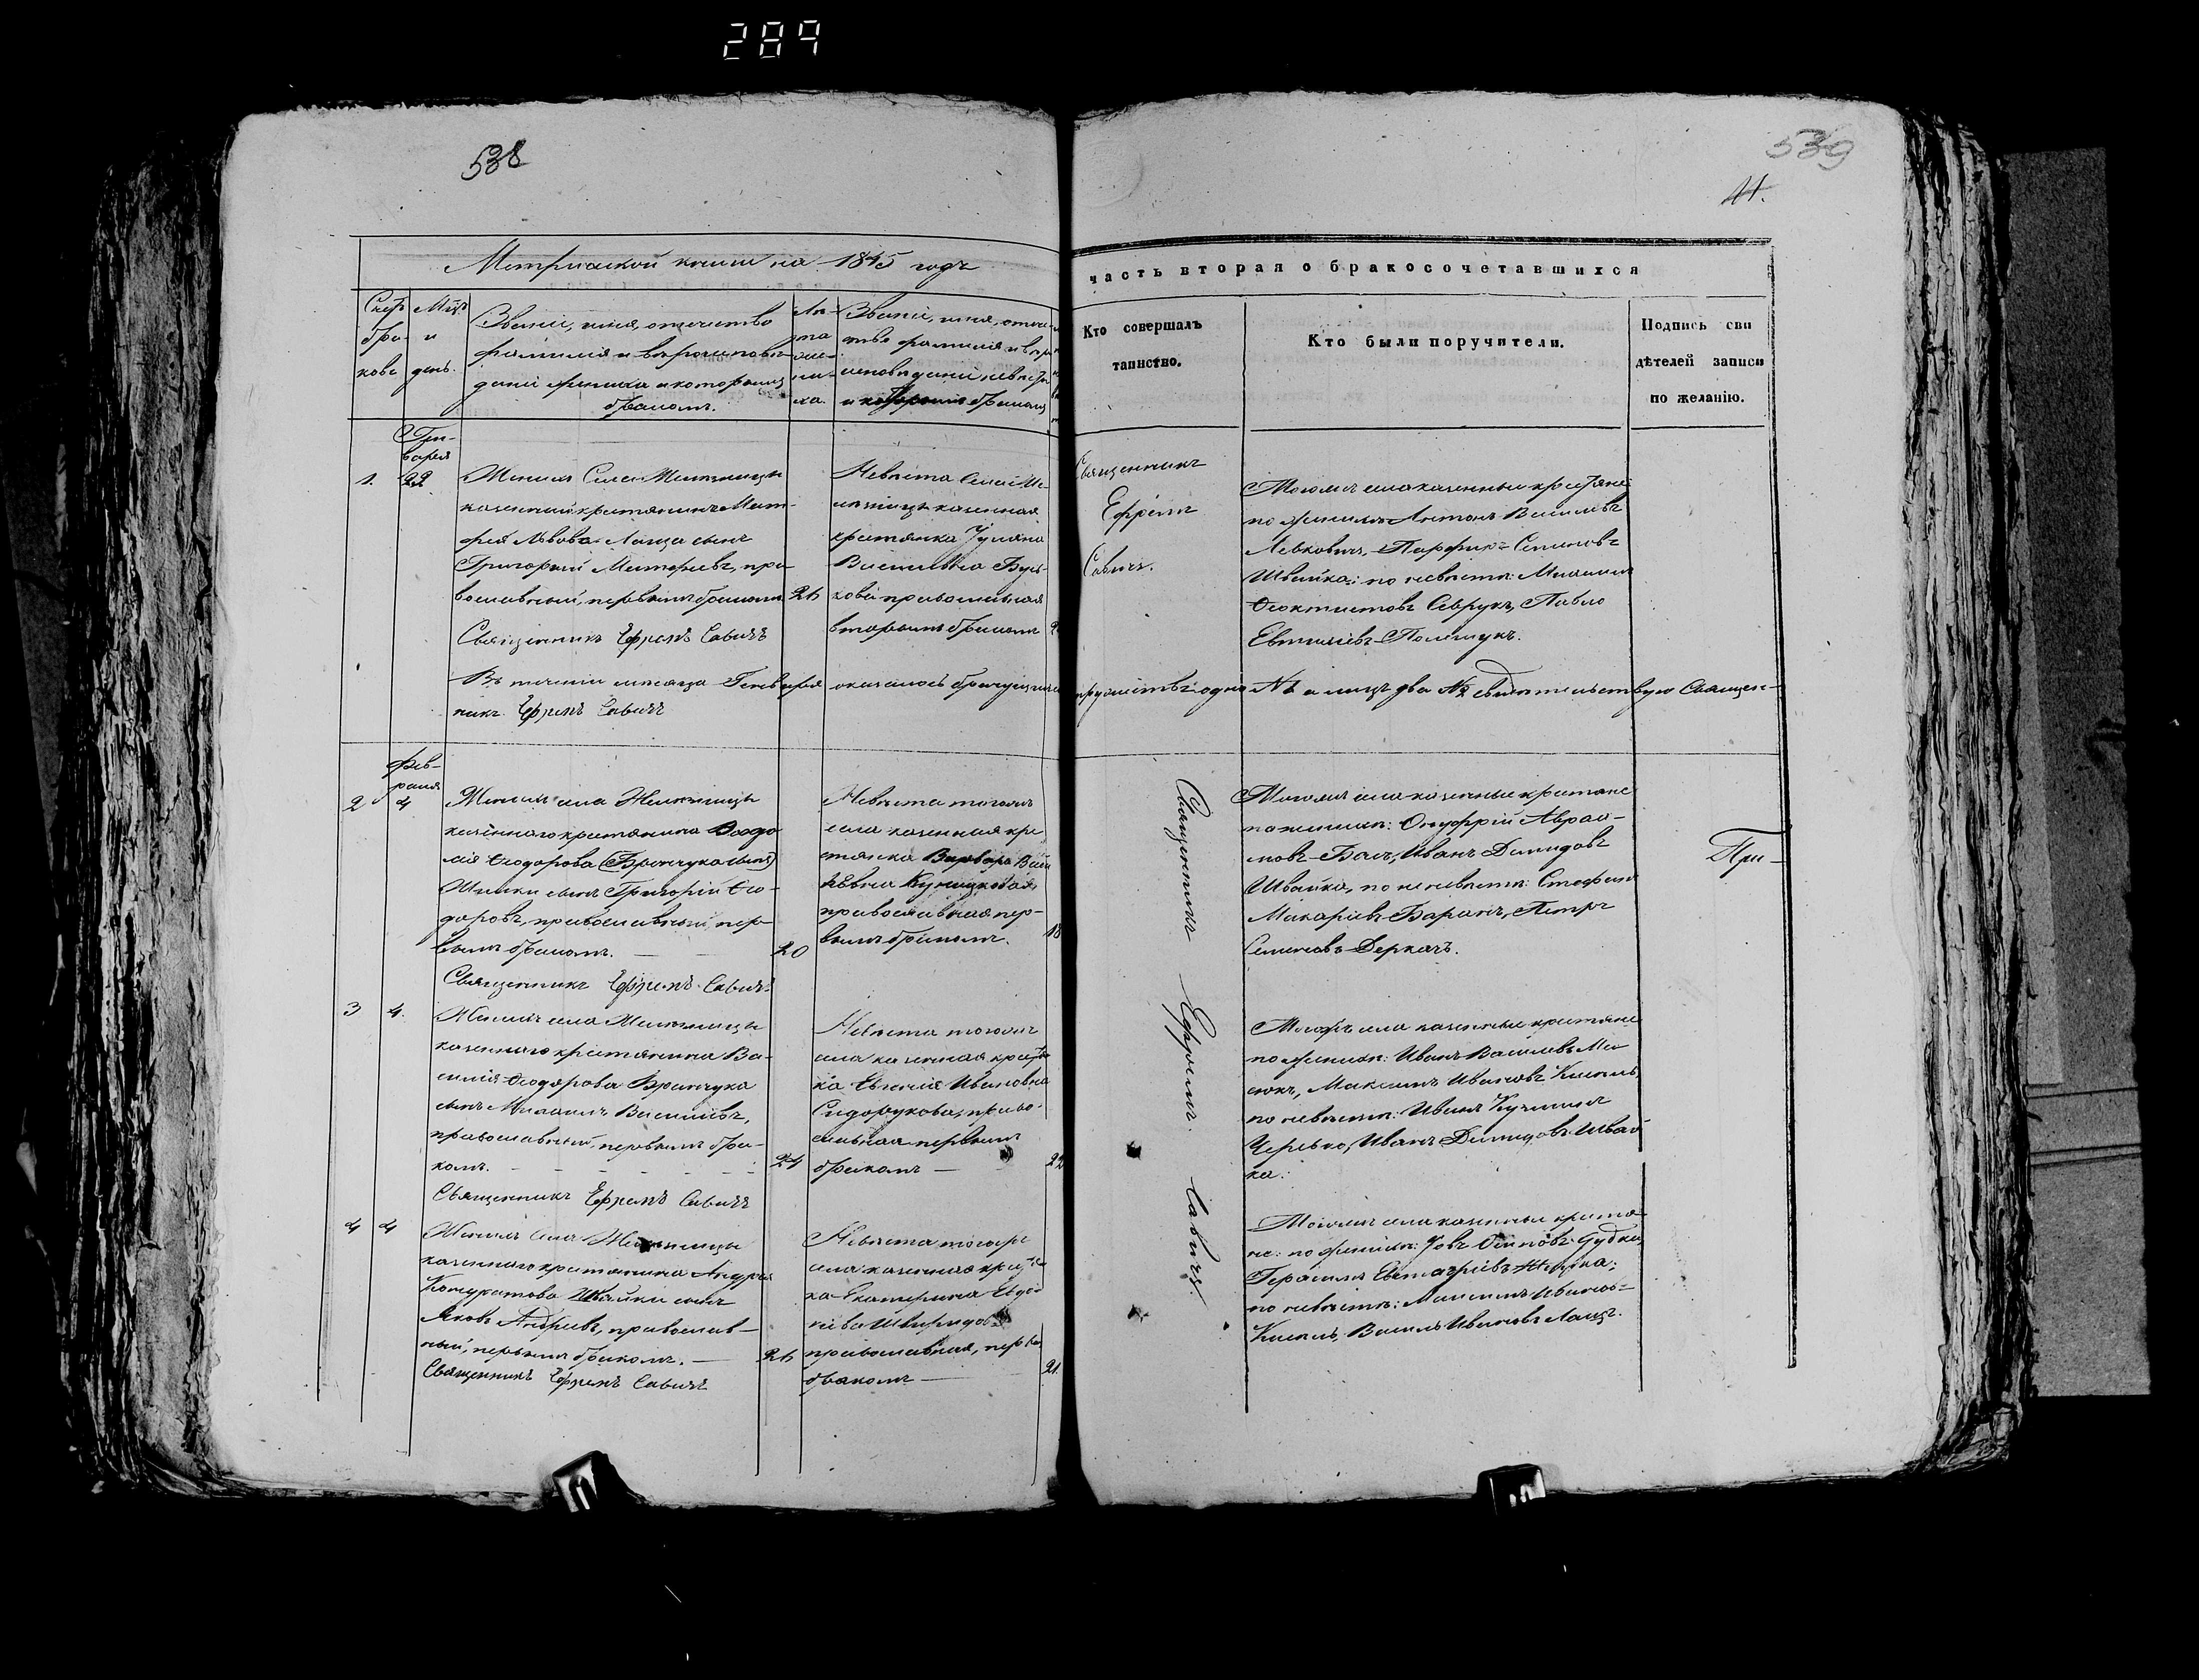 289
538
539
41.
Метрической книги на 1845 годъ
часть вторая о бракосочетавшихся
Счетъ браковъ
Мѣс. и день.
Званіе, имя, отчество
фамилія и вѣроисповѣ-
даніе жениха и которымъ
бракомъ.
Лѣта жениха
Званіе, имя, отче-
ство фамилія и вѣро
исповѣданіе невѣсты
и которымъ бракомъ
Кто совершалъ
таинство.
Кто были поручители.
Подпись сви
дѣтелей записи
по желанію.
Ген-
варя
1. 22
Женихъ Села
казенный крестьянинъ Мат-
фея Львова Лаща сынъ
Григорий Матфеевъ, пра-
вославный, первымъ бракомъ
Священникъ Ефремъ Савичъ
26
Невѣста Села
казенная
крестянка Іулiана
Васильева
православная
вторымъ бракомъ
Священникъ
Ефремъ
Савичъ.
Тогожъ села казенные крестьяне
по женихѣ Антонъ Васильевъ
Левковичъ, Парфенъ Семеновъ
Швайка; по невѣстѣ: Михаилъ
Ѳеоктистовъ Севрукъ, Павло
Евтихiевъ Полещукъ.
Въ теченіи мѣсяца Генваря оказалось бракующихся супружествъ одно № 1 а лицъ два № 2 свидѣтельствую Священ-
никъ Ефремъ Савичъ
Фев-
раля
2 4
Женихъ села
казенного крестянина
Ѳеодорова (Бранчука сынъ)
сынъ Григорій Ѳео-
доровъ, православный, пер-
вымъ бракомъ.
Священникъ Ефремъ Савичъ
20
Невѣста тогожъ
села казенная кре
стянка Варвара
православная пер-
вымъ бракомъ.
18
Тогожъ села казенные крестяне
по женихѣ: Онуфрій Авраа-
мовъ Иванъ Демидовъ
Швайка, по невѣстѣ: Стефанъ
Макаріевъ Баранъ, Петръ
Семеновъ Деркачъ.
При-
3 4.
Женихъ села
казенного крестянина Ва-
силія Ѳеодорова Бранчука
сынъ Михаилъ Васильевъ,
православный, первымъ бра-
комъ.
Священникъ Ефремъ Савичъ
24
Невѣста тогожъ
села казенная крестян
ка Евгенія Ивановна
Сидорукова, право-
славная первымъ
бракомъ
22
Священникъ Ефремъ Савичъ.
Тогожъ села казенные крестяне
по женихѣ: Иванъ Васильевъ
Максимъ Ивановъ
по невѣстѣ: Иванъ
Иванъ Демидовъ Швай
ка.
4 4
Женихъ Села
казенного крестянина Андрея
Кондратова Швайки сынъ
Яковъ Андреевъ, православ-
ный, первымъ бракомъ.
Священникъ Ефремъ Савичъ
26
Невѣста тогожъ
села казенная крестян
ка Екатерина
православная, первымъ
бракомъ
21.
Тогожъ села казенные крестя-
не: по женихѣ: Іовъ Осиповъ Дудка,
Герасимъ
по невѣстѣ: Максимъ Ивановъ
Василь Ивановъ Лащъ.